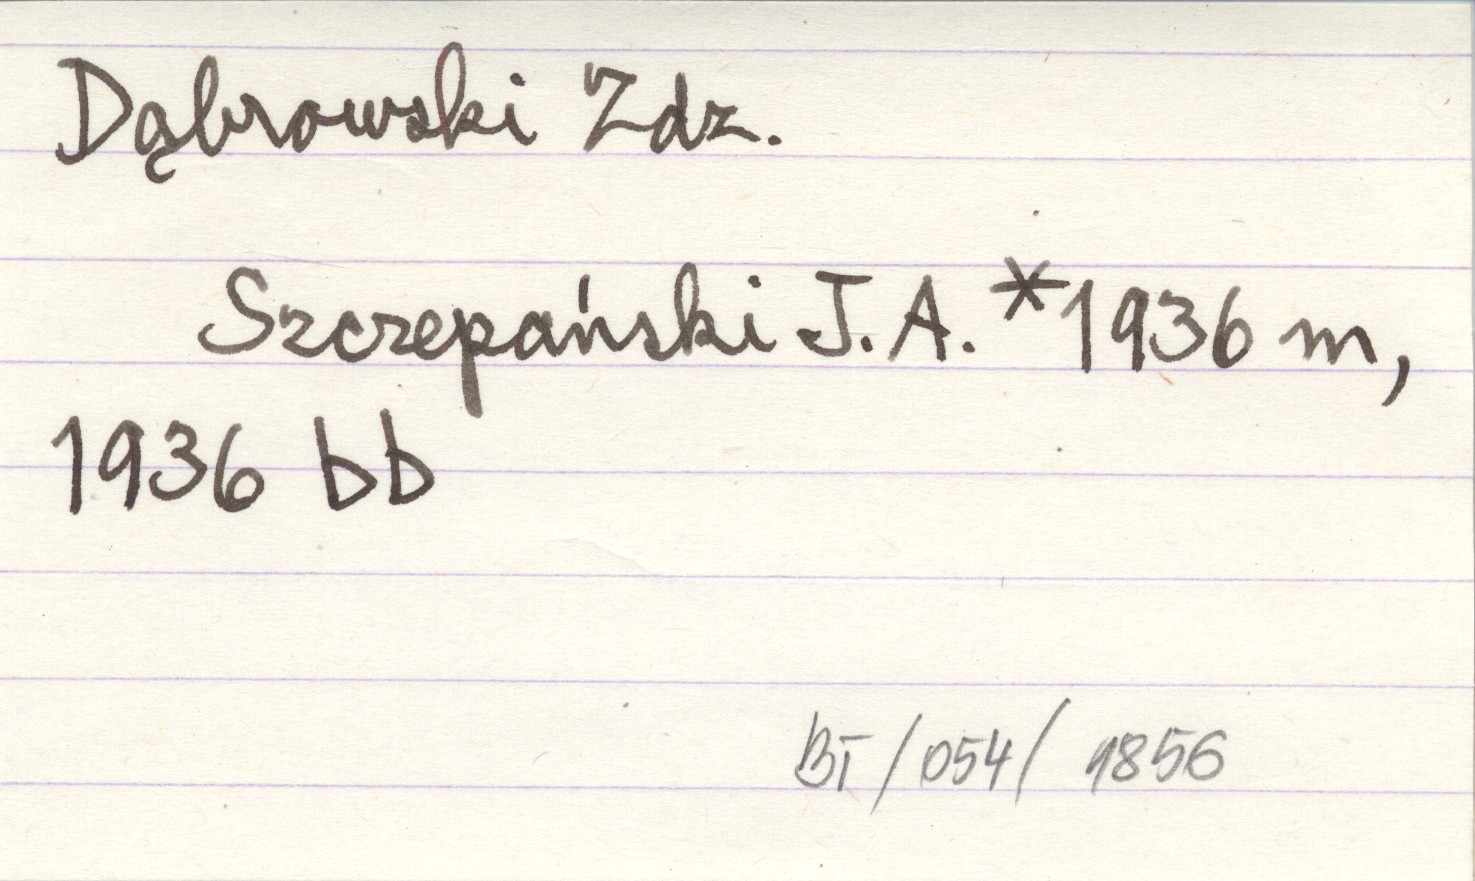 Dąbrowski Zdz.
Szczepański J.A. *1936 m,
1936 bb
BT/054/ 1856